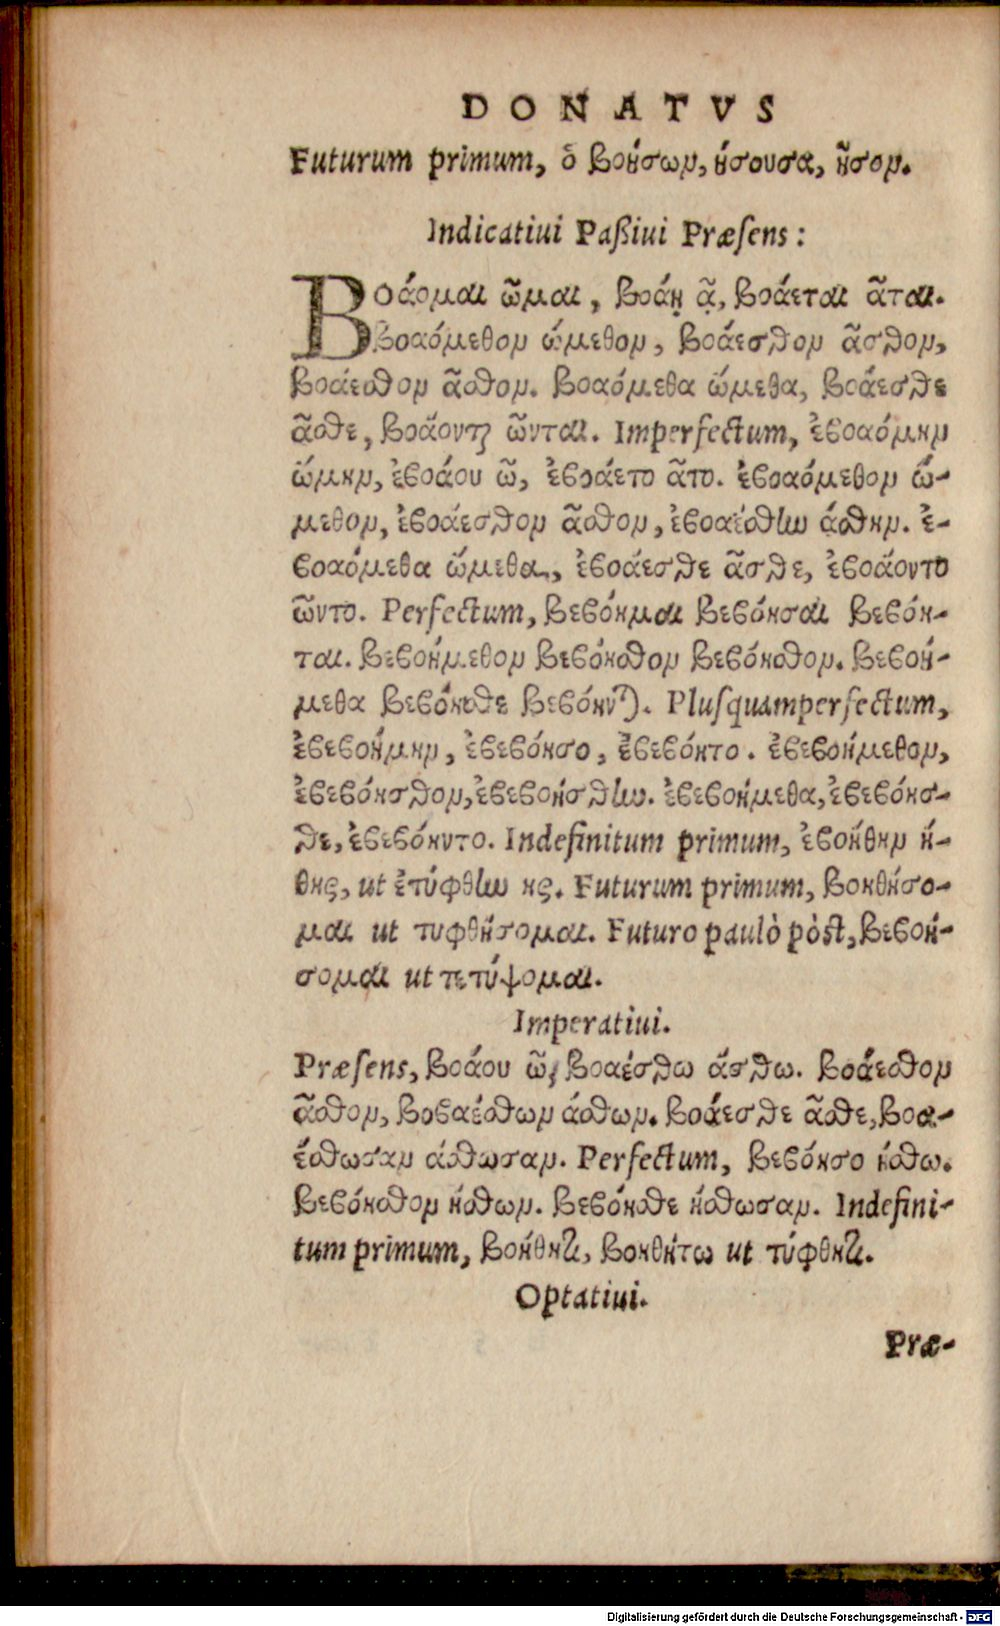 DONATVS
Futurum primum, ὁ βοήσων, ήσουσα, ῆσον.
Indicatiui Paßiui Præſens:
Βοάομαι ῶμαι, βοάῃ ᾷ, βοάεται ᾶται.
βοαόμεθον ώμεθον, βοάεσθον ᾶσθον,
βοάεσθον ᾶσθον. βοαόμεθα ώμεθα, βοάεσθε
ᾶσθε, βοάονται ῶνται. Imperfectum, ἐβοαόμην
ώμην, ἐβοάου ῶ, ἐβοάετο ᾶτο. ἐβοαόμεθον ώ-
μεθον, ἐβοάεσθον ᾶσθον, ἐβοαέσθην άσθην. ἐ-
βοαόμεθα ώμεθα, ἐβοάεσθε ᾶσθε, ἐβοάοντο
ῶντο. Perfectum, βεβόημαι βεβόησαι βεβόη-
ται. βεβοήμεθον βεβόησθον βεβόησθον. βεβοή-
μεθα βεβόησθε βεβόηνται. Pluſquamperfectum,
ἐβεβοήμην, ἐβεβόησο, ἐβεβόητο. ἐβεβοήμεθον,
ἐβεβόησθον, ἐβεβοήσθην. ἐβεβοήμεθα, ἐβεβόησ-
θε, ἐβεβόηντο. Indefinitum primum, ἐβοήθην ή-
θης, ut ἐτύφθην ης. Futurum primum, βοηθήσο-
μαι ut τυφθήσομαι. Futuro paulò pòst, βεβοή-
σομαι ut τετύψομαι.
Imperatiui.
Præſens, βοάου ῶ, βοαέσθω άσθω. βοάεσθον
ᾶσθον, βοβαέσθων άσθων. βοάεσθε ᾶσθε, βοα-
έσθωσαν άσθωσαν. Perfectum, βεβόησο ήσθω.
βεβόησθον ήσθων. βεβόησθε ήσθωσαν. Indefini-
tum primum, βοήθητι, βοηθήτω ut τύφθητι.
Optatiui.
Præ-
Digitalisierung gefördert durch die Deutsche Forschungsgemeinschaft - DFG